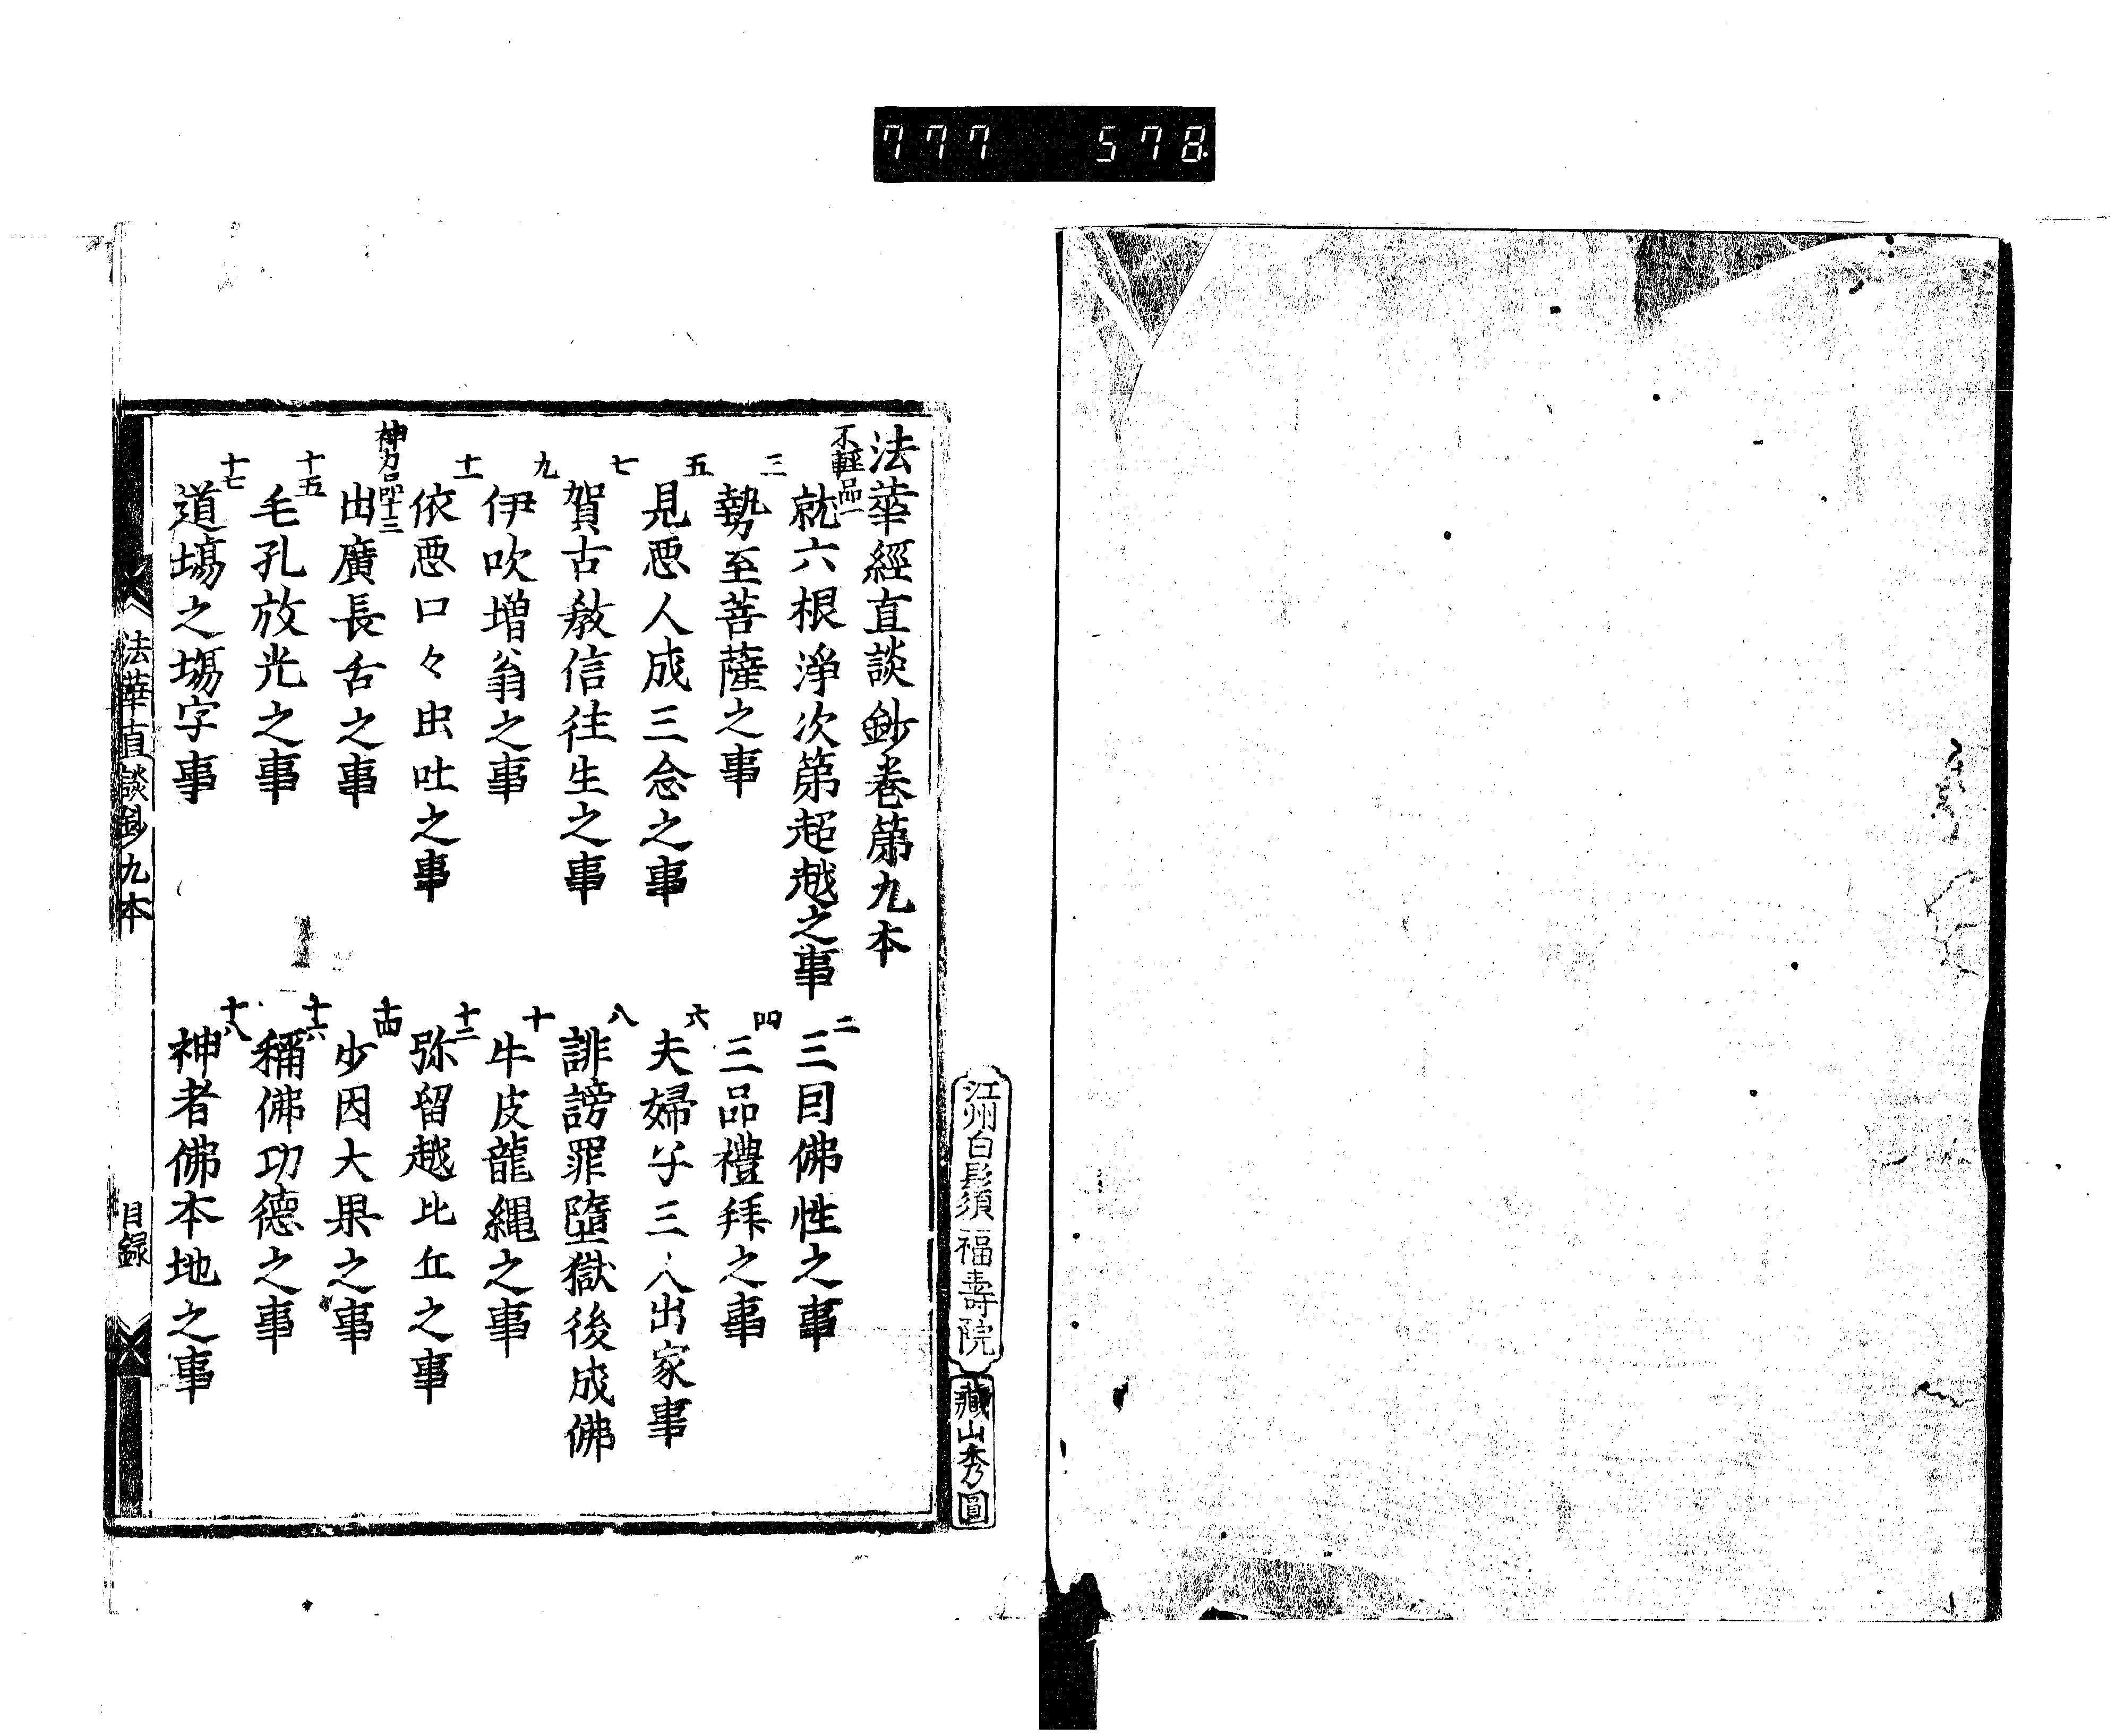 777 578
法華經直談鈔卷第九本
不輕品一 就六根淨次第超越之事
二 三因佛性之事
三 勢至菩薩之事
四 三品禮拜之事
五 見惡人成三念之事
六 夫婦子三人出家事
七 賀古教信往生之事
八 誹謗罪墮獄後成佛
九 伊吹增翁之事
十 牛皮龍繩之事
十一 依惡口々虫吐之事
十二 弥留越比丘之事
神力品十三 出廣長舌之事
十四 少因大果之事
十五 毛孔放光之事
十六 稱佛功德之事
十七 道場之場字事
十八 神者佛本地之事
法華直談鈔九本 目録
江州白髭須福壽院
藏山秀圓